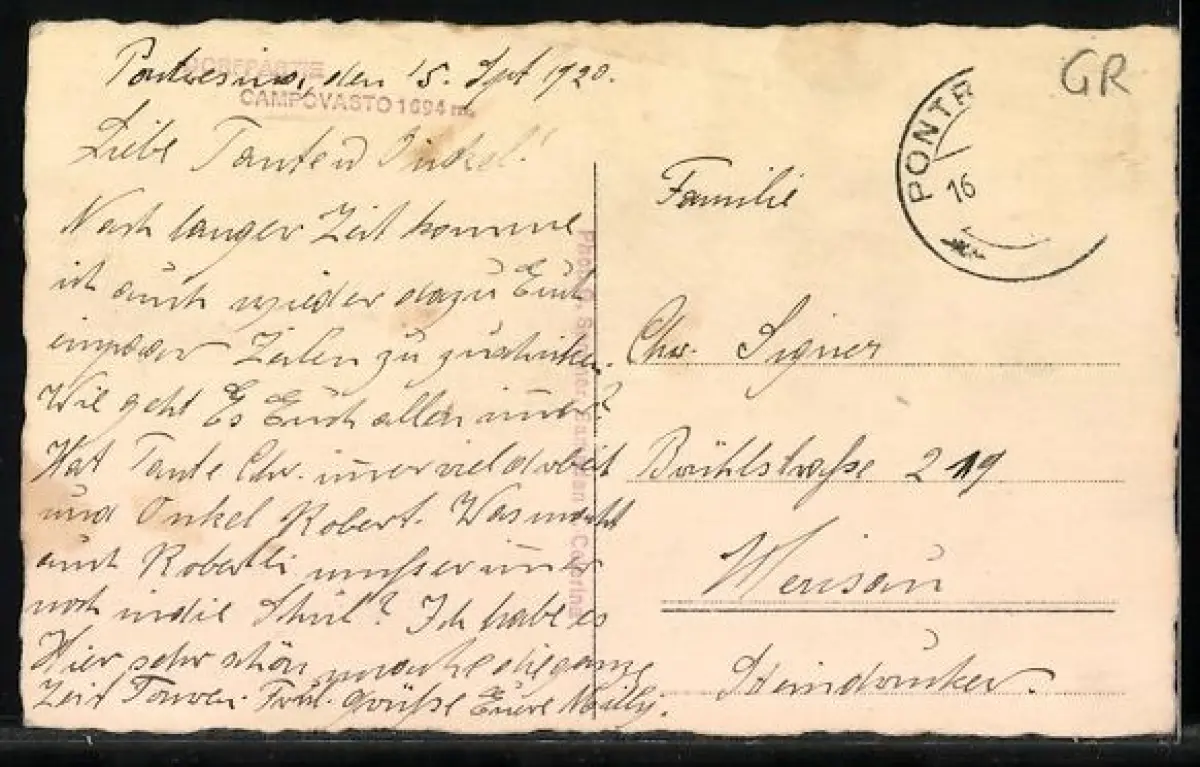 DORFPARTIE
CAMPOVASTO 1694 m.
Pontresina, den 15. Spt 1920.
Liebe Tante u Onkel!
Nach langer Zeit komme
ich auch wieder dazu Euch
einpaar Zeilen zu zuschriken.
Wie geht Es Euch allen imer?
Hat Tante Chr. imer viel arbeit
und Onkel Robert. Was macht
auch Robertli muss er imer
noch in die Schul? Ich habe es
Hier sehr schön, mache die ganze
Zeit Touren. Frdl. grüsse Euere Nelly.
Phot.
Celerina
GR
PONTR
16
Familie
Chr. Signer
Brühlstraße 219
Herisau
Steindruker.